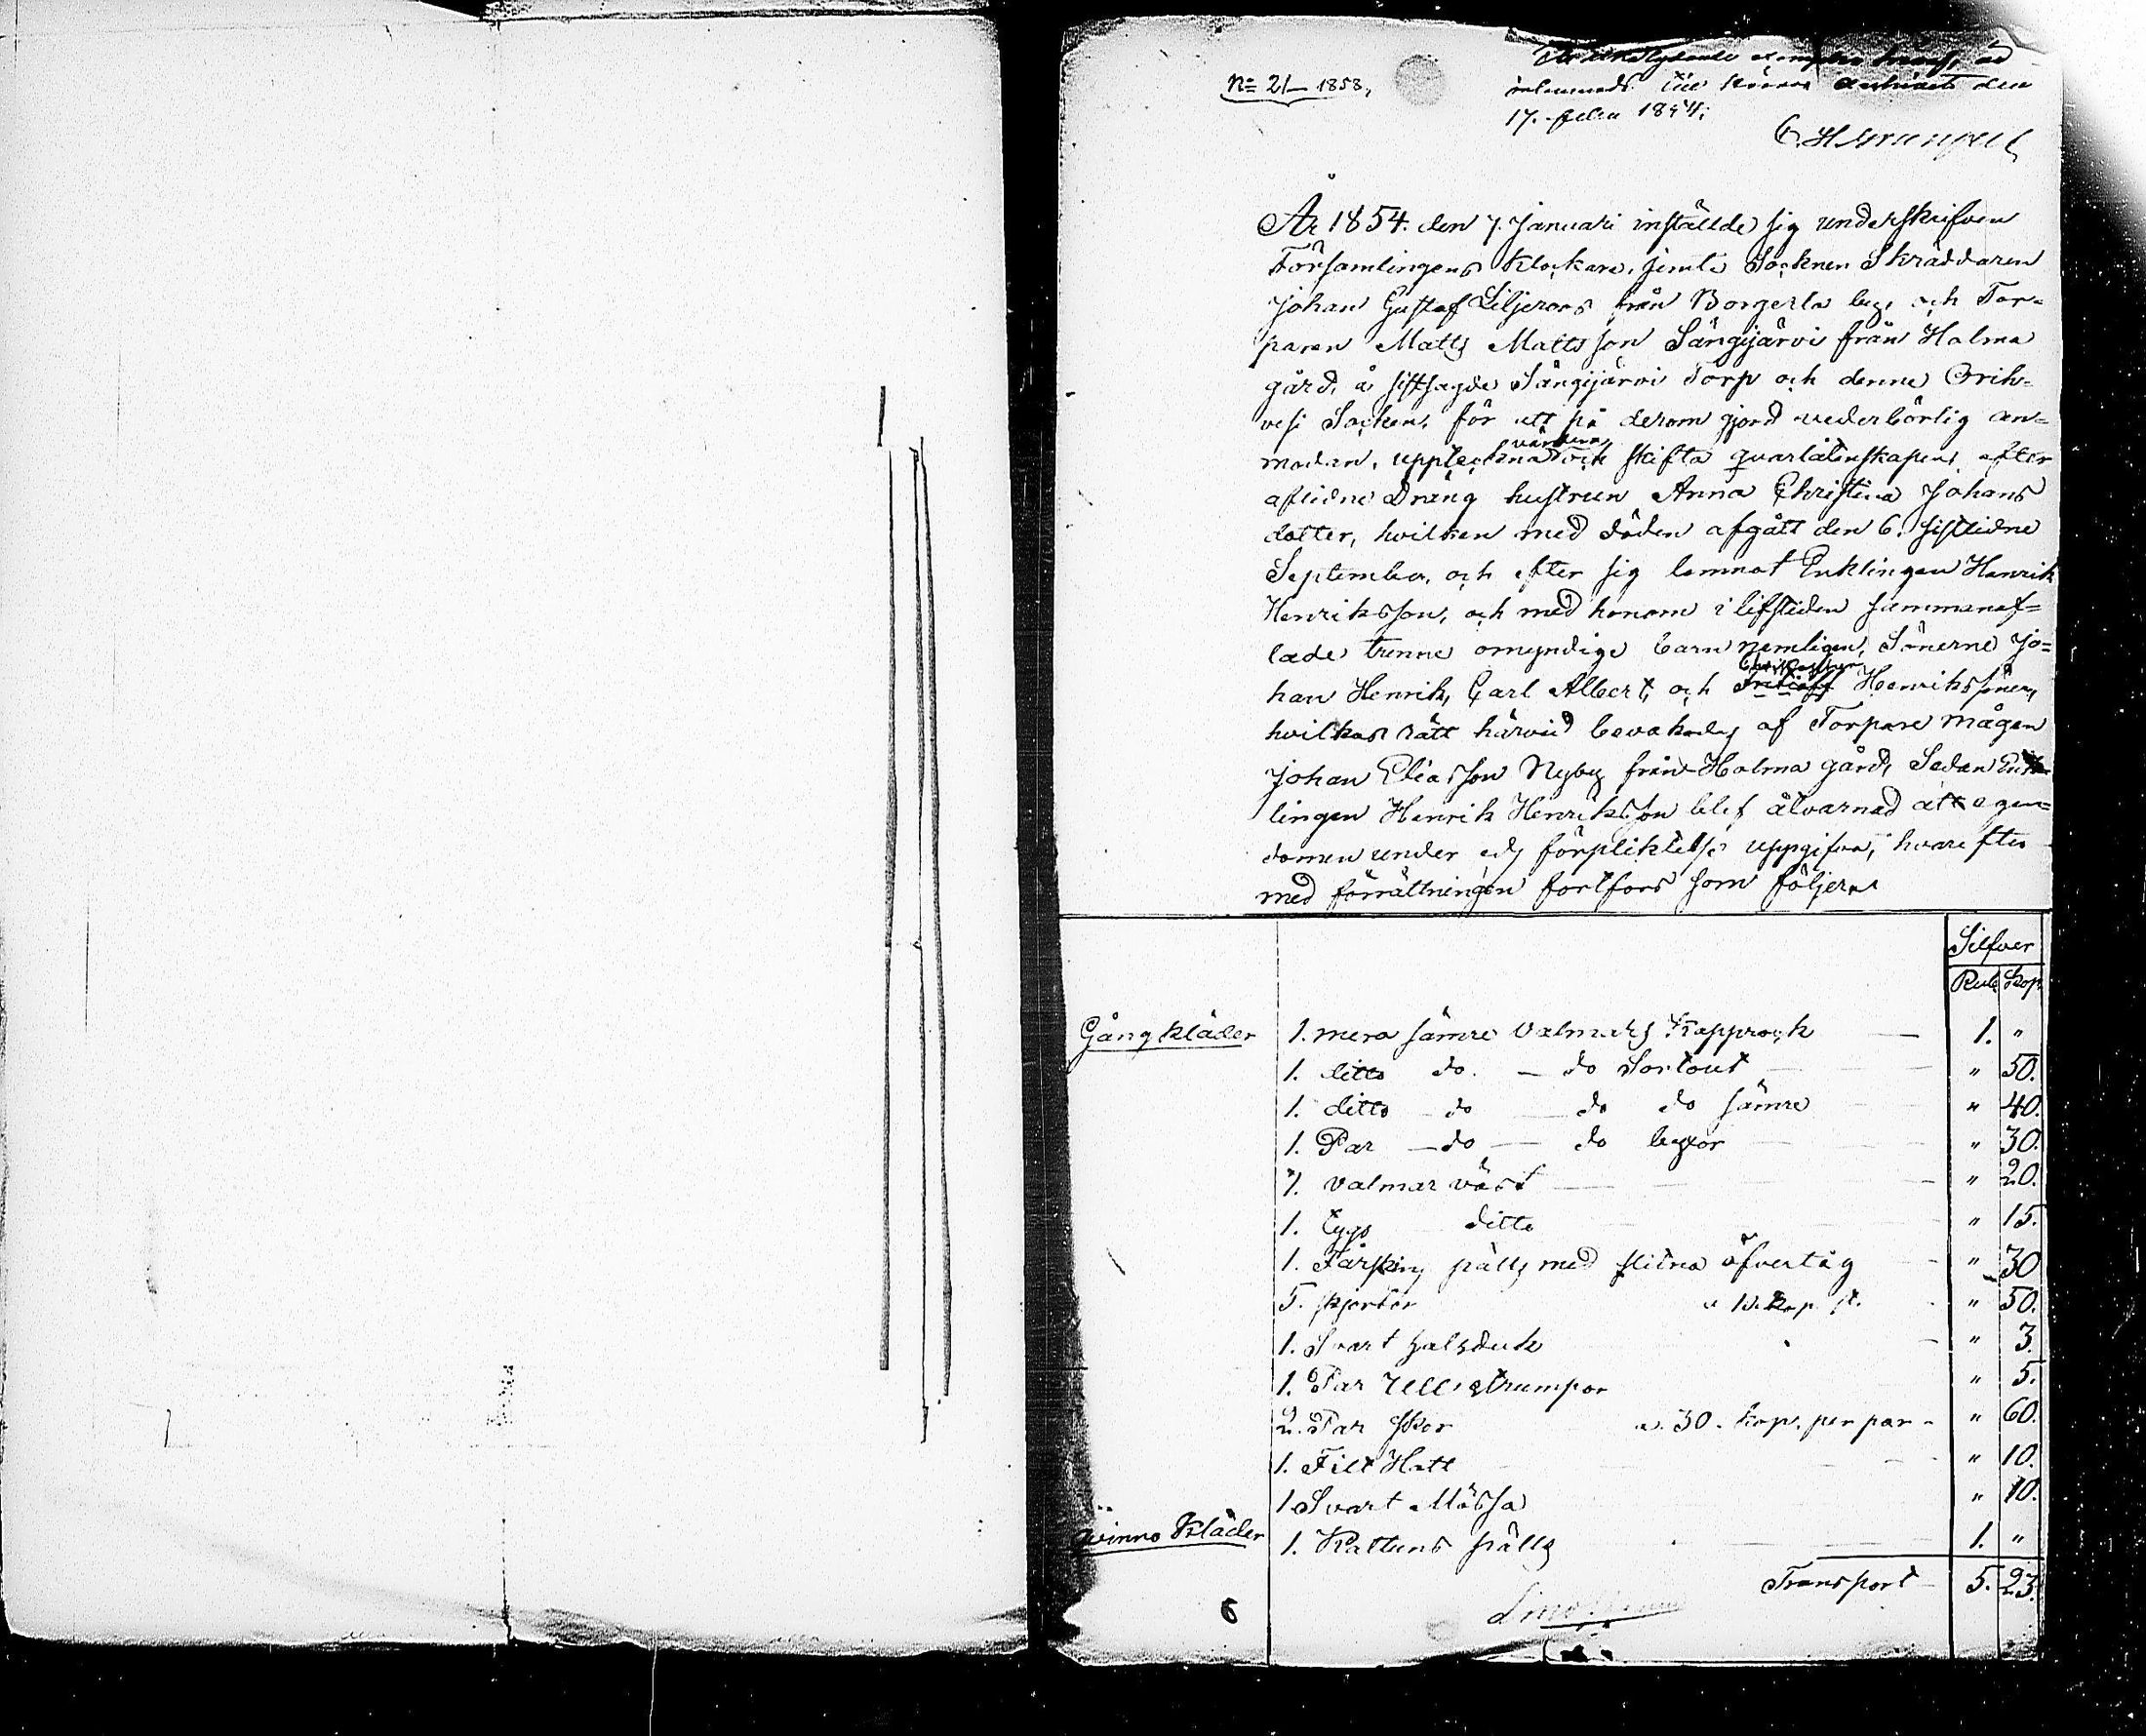 No 21_ 1853,
Ett lika lydande exemplar häraf, är
inlemnadt till Härads Archivet den
17. Febru 1854;
År 1854. den 7. Januari inställde sig underskrifven
Församlingens Klockare, jemte Socknen Skräddaren
Johan Gustaf Liljeroos från Borgerla by, och Tor=
paren Matts Mattsson Sängijärvi från Holma
gård, å sistsagde Sängijärvi Torp och denne Orih=
vesi Socken, för att på derom gjord vederbörlig an=
modan, uppteckna värdera och skifta qvarlåtenskapen efter
aflidne Dräng hustrun Anna Christina Johans
dotter, hvilken med döden afgått den 6. sistlidne
September, och efter sig lemnat Enklingen Henrik
Henriksson, och med honom i lifstiden sammanaf=
lade trenne omyndige barn nemligen, Sönerne Jo=
han Henrik, Carl Albert, och Christopher Henrikssöner,
hvilkas rätt härvid bevakades af Torpare mågen
Johan Eliasson Nyby från Holma gård, Sedan Enk
lingen Henrik Henriksson blef åtvarnad att egen=
domen under eds förpliktelse uppgifva, hvarefter
med förrättningen fortfors som följer
Silfver
Rub Kop.
Gång kläder 1. mera sämre Valmars Kapprock 1. "
1. ditto do. — do Sortout " 50.
1. ditto do — do do sämre " 40.
1. Par — do — do byxor " 30.
1. valmar väst " 20.
1. tygs ditto " 15.
1. Fårskins pälts med slitna öfvertåg " 30
5. skjortor a 10. kop. st. " 50.
1. Svart halsduk " 3.
1. Par Ulle strumpor " 5.
2. Par skor a. 30. kop. per par " 60.
1. Filt Hatt " 10.
1 Svart Mössa " 10.
qvinno Kläder 1. Kattuns pälts 1. "
Transport 5. 23.
6